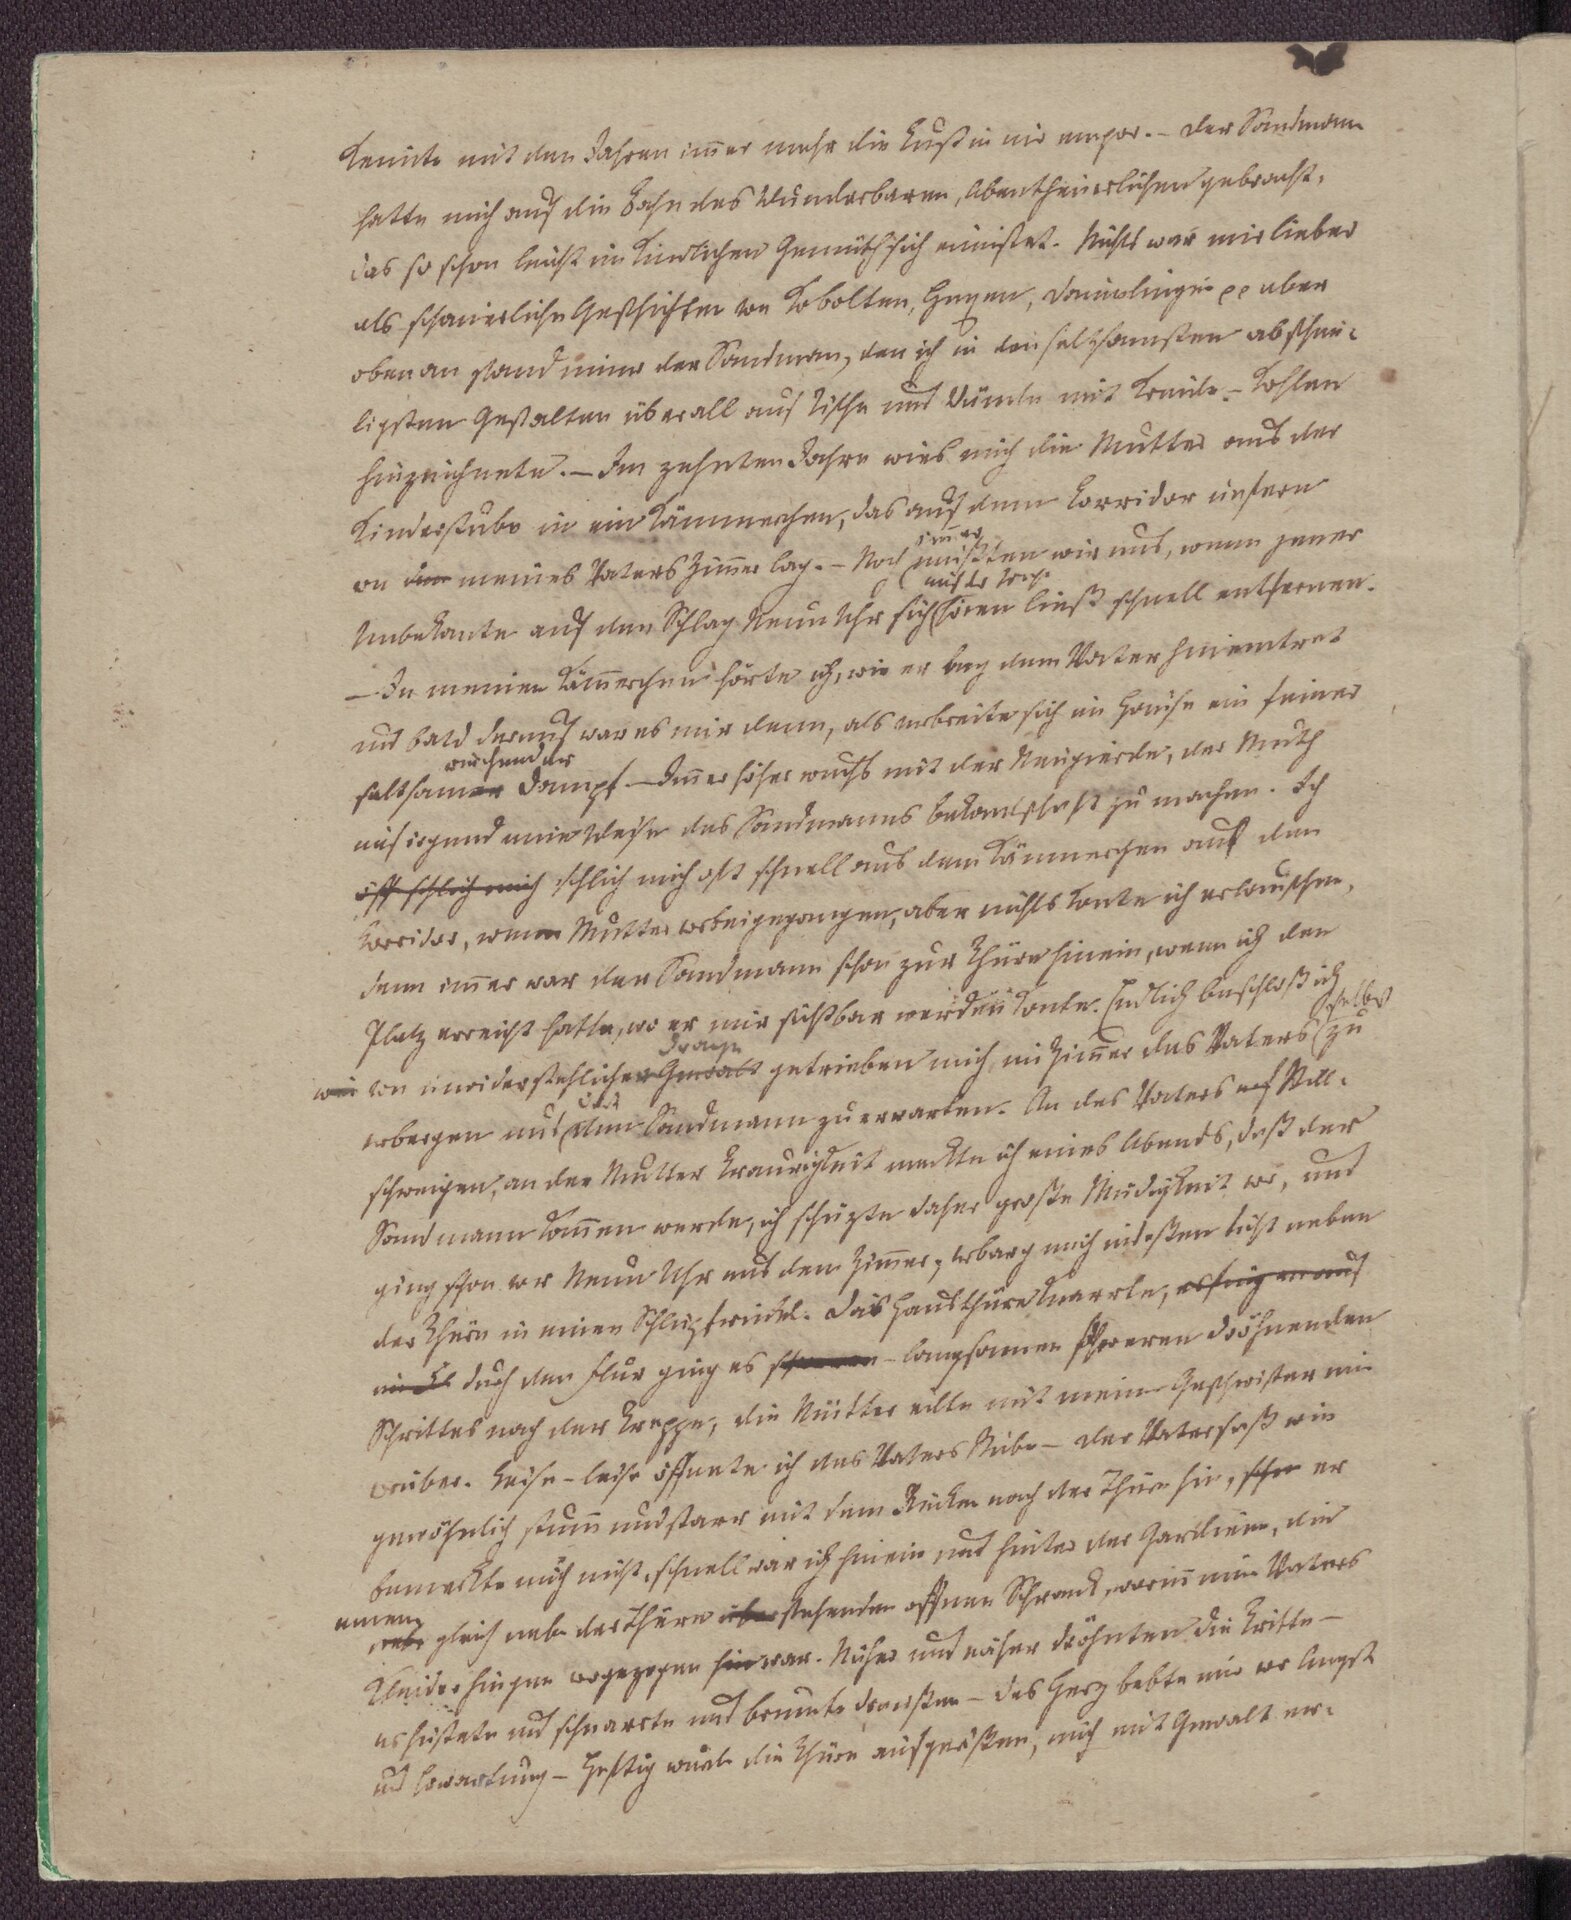 keimte mit den Jahren im̄er mehr die Lust in mir empor. – Der Sandmann
hatte mich auf die Bahn des Wunderbaren, Abentheuerlichen gebracht,
das so schon leicht im kindlichen Gemüth sich einnistet. Nichts war mir lieber
als schauerliche Geschichten von Kobolten, Hexen, Däumlingen pp aber
oben an stand immer der Sandman, den ich in den seltsamsten abscheu-
ligsten Gestalten überall auf Tische und Wände mit Kreide – Kohlen
hinzeichnete. – Im zehnten Jahre wies mich die Mutter aus der
Kinderstube in ein Kämmerchen, das auf dem Corridor unfern
von meines Vaters Zim̄er lag. – Noch im̄er mußten wir uns, wenn jener
Unbekante auf den Schlag Neun Uhr sich hören ließ schnell entfernen.
– In meinem Käm̄erchen hörte ich, wie er bey dem Vater hineintrat
und bald darauf war es mir dann, als verbreite sich im Hause ein feiner
seltsam riechender Dampf – Im̄er höher wuchs mit der Neugierde, der Muth
auf irgend eine Weise des Sandmanns bekantschaft zu machen. Ich
öff schlich mich schlich mich oft schnell aus dem Kämmerchen auf den
Korridor, wenn Mutter vorbeigegangen, aber nichts konte ich erlauschen,
denn im̄er war der Sandmann schon zur Thüre hinein, wenn ich den
Platz erreicht hatte, wo er mir sichtbar werden konte. Endlich beschloß ich
wie von unwiderstehlichem Drange Gewalt getrieben mich im Zim̄er des Vaters selbst zu
verbergen und den Sandmann zu erwarten. An des Vaters Still-
schweigen, an der Mutter Traurigkeit merkte ich eines Abends, daß der
Sandmann kom̄en werde, ich schüzte daher große Müdigkeit vor, und
ging schon vor Neun Uhr aus dem Zim̄er, verbarg mich indeßen dicht neben
der Thüre in einen Schlupfwinkel. Die Hausthüre knarrte, es fing an auf
durch den Flur ging es – langsamen schweren dröhnenden
Schrittes nach der Treppe; die Mutter eilte mit meinen Geschwistern mir
vorüber. Leise – leise öffnete ich des Vaters Stube – Der Vater saß wie
gewöhnlich stum̄ und starr mit dem Rücken nach der Thüre hin, er
bemerkte mich nicht, schnell war ich hinein und hinter der Gardiene, die
einem gleich neben der Thüre stehenden offnen Schrank, worin̄ mein Vaters
Kleider hingen vorgezogen war. Näher und näher dröhnten die Tritte –
es hustete und scharrte und brumte draußen – das Herz bebte mir vor Angst
und Erwartung – Heftig wurde die Thüre aufgerißen, mich mit Gewalt er-